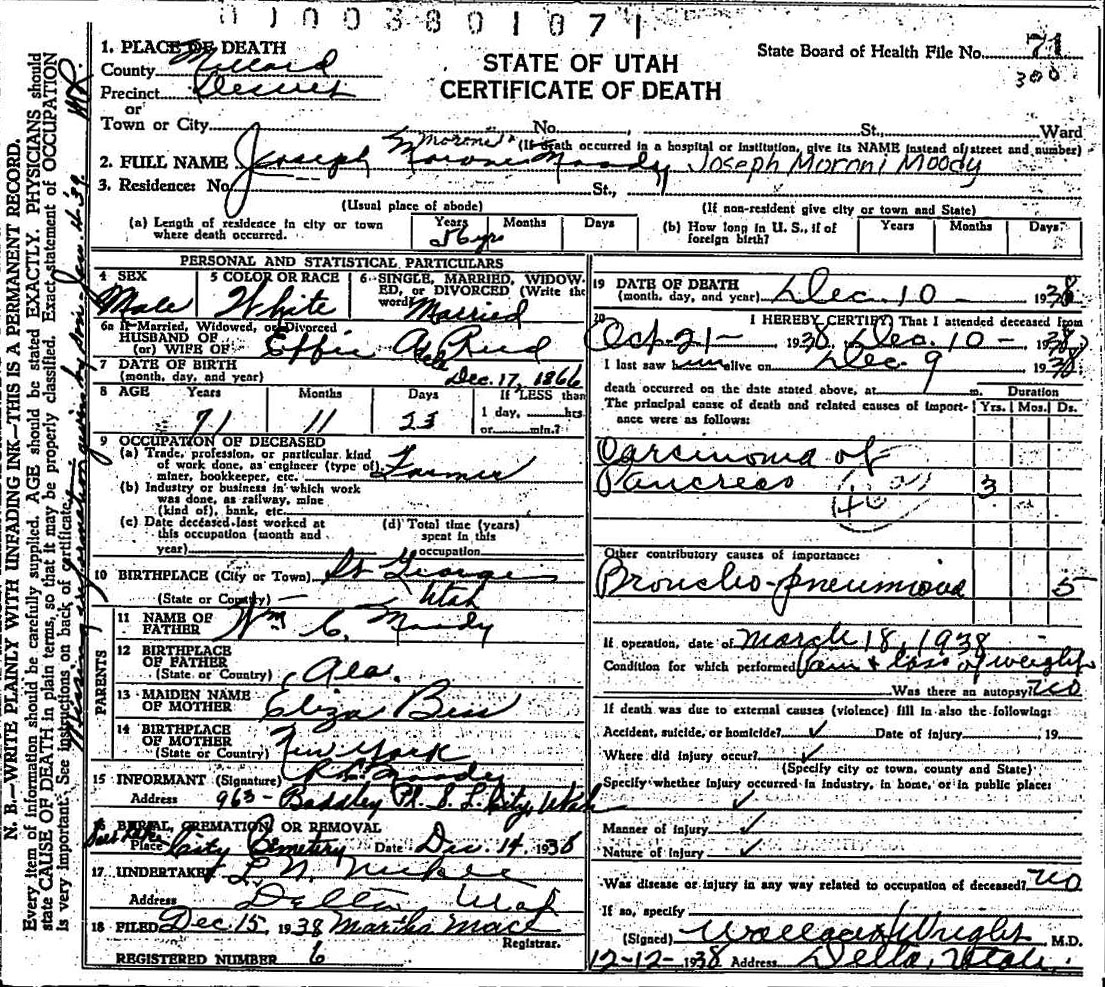 0100380107 1
1. PLACE OF DEATH
County Millard
Precinct Deseret
or
Town or City No. St., Ward
STATE OF UTAH
CERTIFICATE OF DEATH
State Board of Health File No. 71
300
(If death occurred in a hospital or institution, give its NAME instead of street and number)
Moroni
2. FULL NAME Joseph Moroni Moody Joseph Moroni Moody
3. Residence: No. St.,
(Usual place of abode) (If non-resident give city or town and State)
(a) Length of residence in city or town where death occurred. Years Months Days
56 yrs
(b) How long in U. S., if of foreign birth? Years Months Days
PERSONAL AND STATISTICAL PARTICULARS
4 SEX 5 COLOR OR RACE 6 SINGLE, MARRIED, WIDOWED, or DIVORCED (Write the word)
Male White Married
6a If Married, Widowed, or Divorced
HUSBAND OF
(or) WIFE OF Effie Reid
7 DATE OF BIRTH
(month, day, and year) Dec. 17, 1866
8 AGE Years Months Days If LESS than
1 day, hrs.
or min.?
71 11 23
9 OCCUPATION OF DECEASED
(a) Trade, profession, or particular kind
of work done, as engineer (type of)
miner, bookkeeper, etc. Farmer
(b) Industry or business in which work
was done, as railway, mine
(kind of), bank, etc.
(c) Date deceased last worked at
this occupation (month and
year)
(d) Total time (years)
spent in this
occupation
10 BIRTHPLACE (City or Town) St George
(State or Country) Utah
PARENTS
11 NAME OF
FATHER Wm C. Moody
12 BIRTHPLACE
OF FATHER
(State or Country) Ala.
13 MAIDEN NAME
OF MOTHER Eliza Bess
14 BIRTHPLACE
OF MOTHER
(State or Country) New York
15 INFORMANT (Signature) Moody
Address 963 - Baddley Pl. S. L. City, Utah
16 BURIAL, CREMATION, OR REMOVAL
Salt Lake
Place City Cemetery Date Dec. 14. 1938
17 UNDERTAKER L. N.
Address Delta Utah
18 FILED Dec. 15, 1938 Martha Mace
Registrar.
REGISTERED NUMBER 6
19 DATE OF DEATH
(month, day, and year) Dec. 10 - 1938
20 I HEREBY CERTIFY That I attended deceased from
Oct - 21 - 1938, Dec. 10 - 1938
I last saw alive on Dec. 9 1938
death occurred on the date stated above, at m. Duration
The principal cause of death and related causes of importance were as follows: Yrs. Mos. Ds.
Carcinoma of
Pancreas 3
46
Other contributory causes of importance:
Broncho-pneumonia 5
If operation, date of March 18, 1938
Condition for which performed Pain & loss of weight
Was there an autopsy? no
If death was due to external causes (violence) fill in also the following:
Accident, suicide, or homicide? ✓ Date of injury , 19
Where did injury occur? ✓
(Specify city or town, county and State)
Specify whether injury occurred in industry, in home, or in public place:
✓
Manner of injury ✓
Nature of injury ✓
Was disease or injury in any way related to occupation of deceased? no
If so, specify
(Signed) Wright M.D.
12-12-1938 Address Delta, Utah.
N. B.—WRITE PLAINLY WITH UNFADING INK—THIS IS A PERMANENT RECORD.
Every item of information should be carefully supplied. AGE should be stated EXACTLY. PHYSICIANS should
state CAUSE OF DEATH in plain terms, so that it may be properly classified. Exact statement of OCCUPATION
is very important. See instructions on back of certificate.
Missing information given by son - Jan. 11-39.